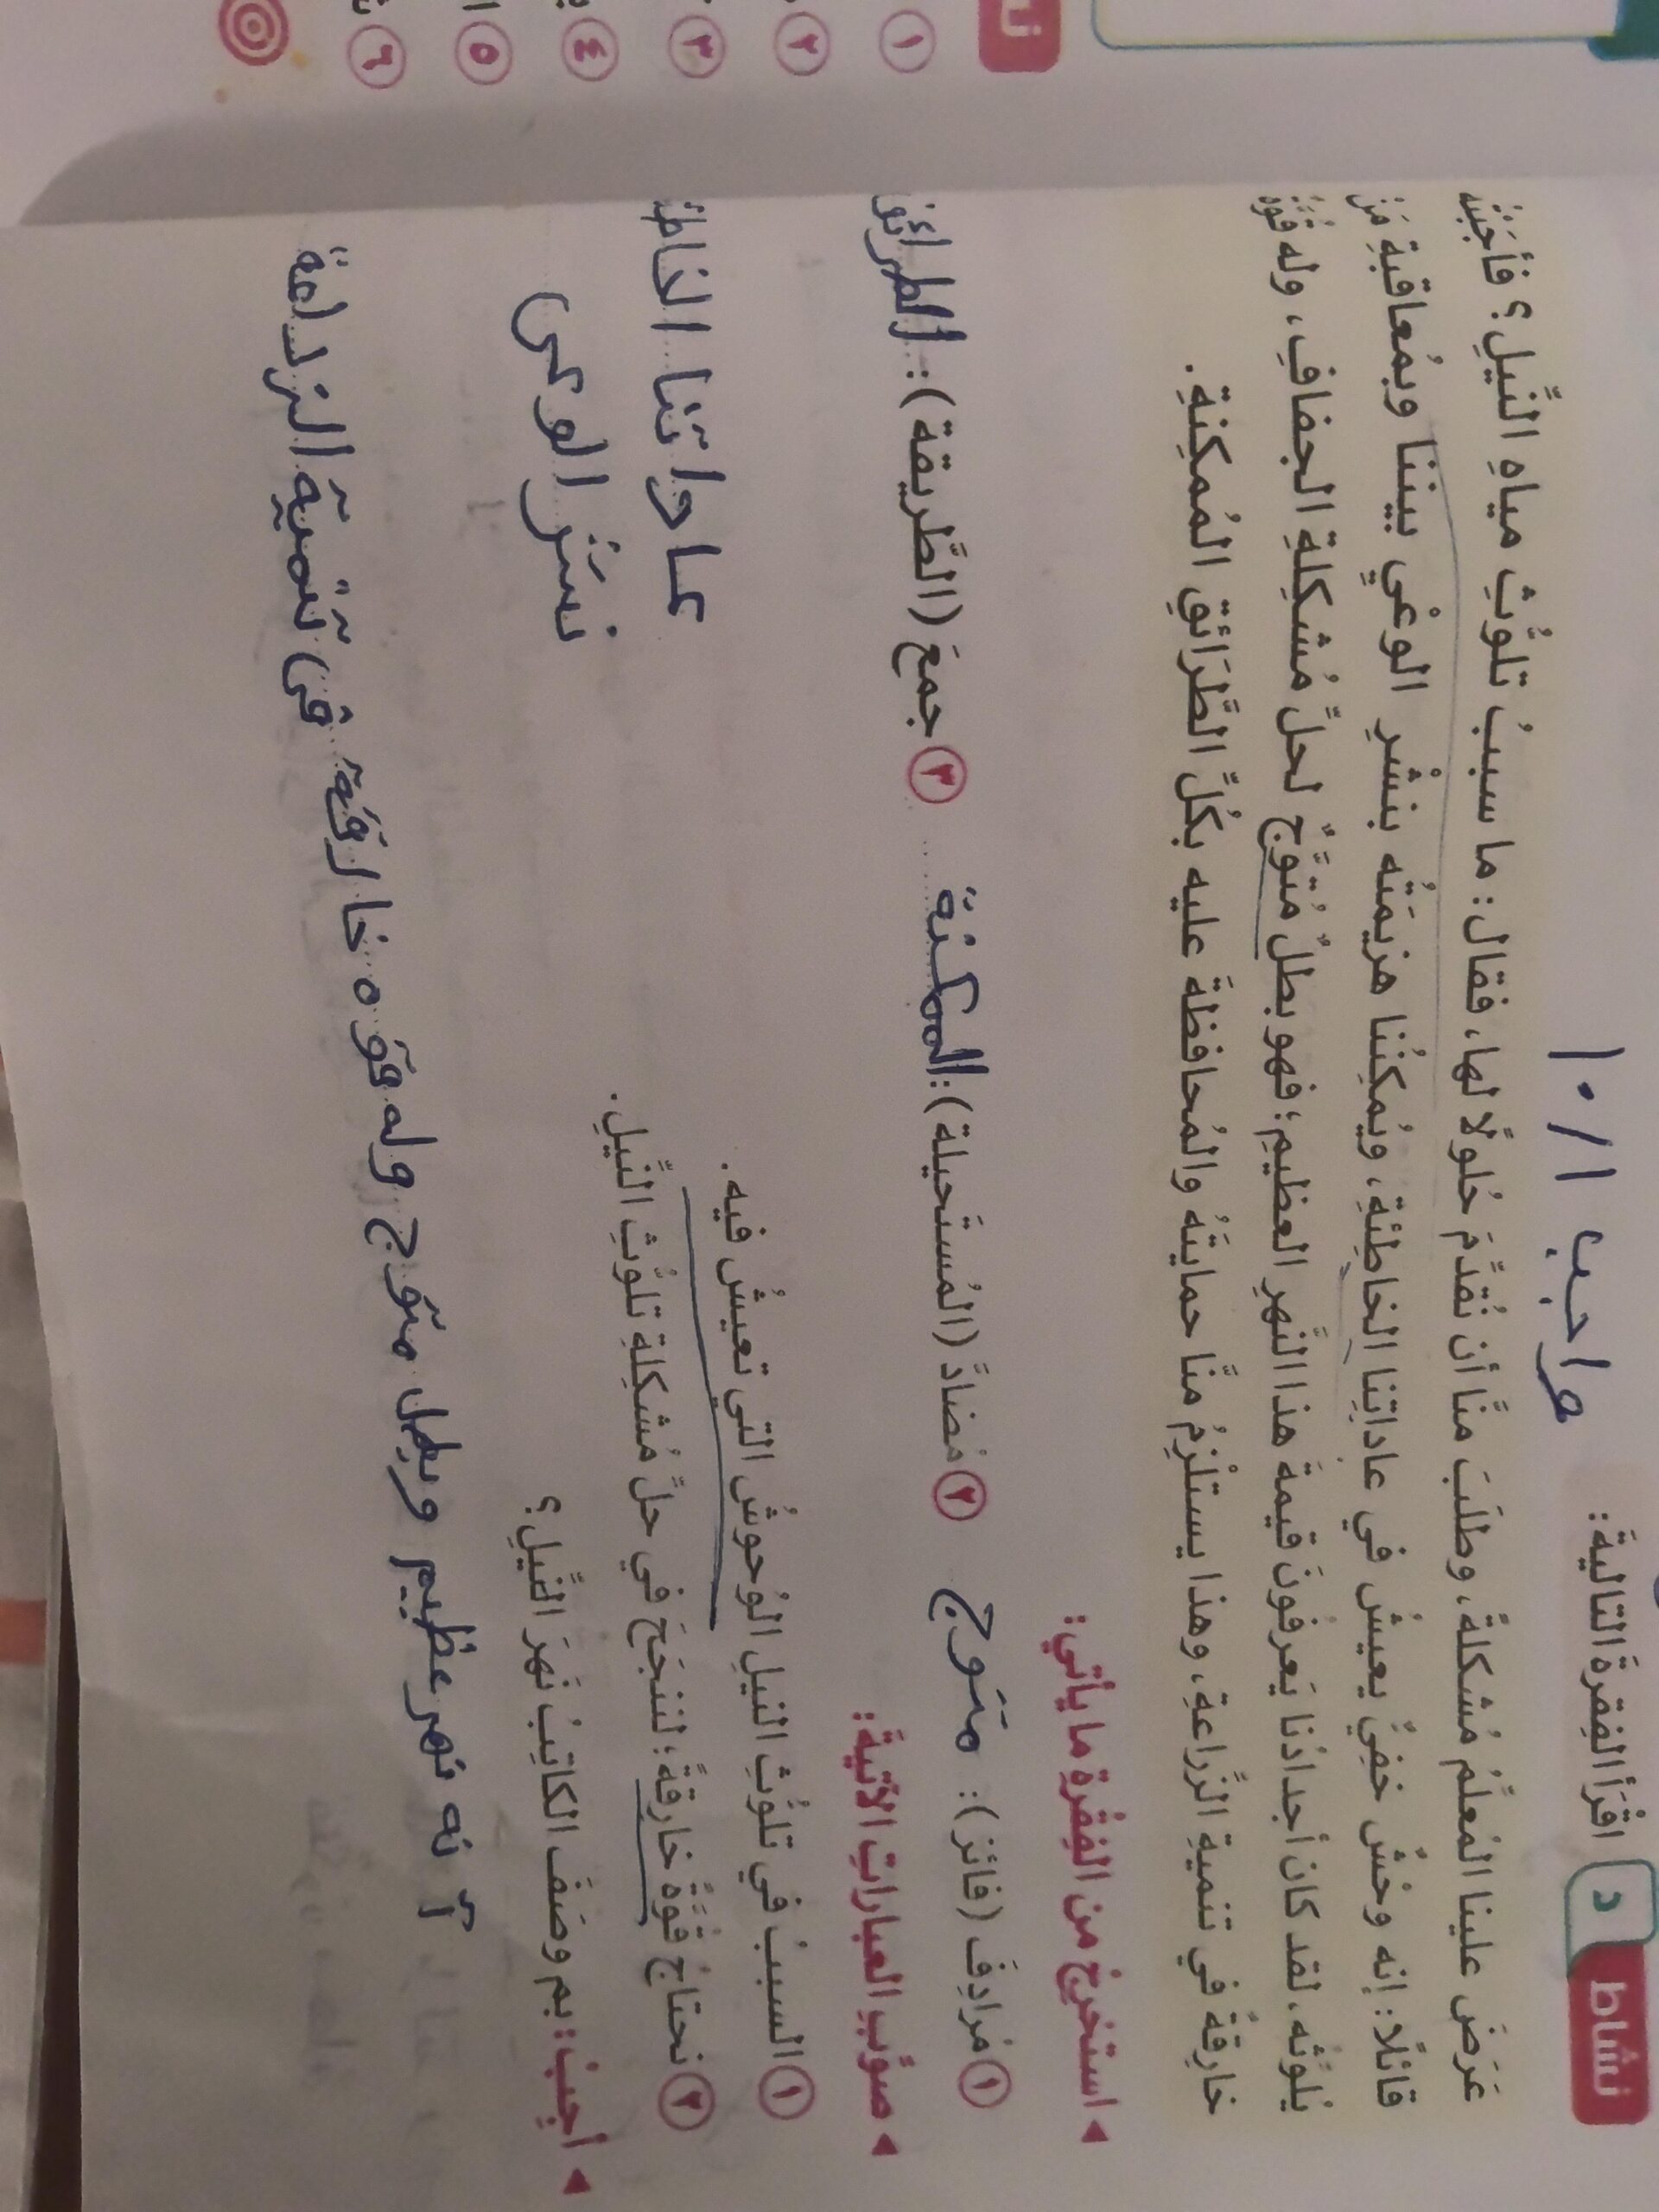 واجب ١٠/١
نشاط د اقْرَأ الفِقرةَ التاليةَ:
عَرَضَ علينا المُعلِّمُ مُشكلةً، وطلَبَ منَّا أن نُقدِّمَ حُلولًا لها، فقال: ما سببُ تلوُّثِ مياهِ النِّيلِ؟ فأجَبْتُه
قائلًا: إنه وحْشٌ خفِيٌّ يعيشُ في عاداتِنا الخاطِئةِ، ويُمكِنُنا هزيمَتُه بنشْرِ الوعْيِ بيننا وبمُعاقبةِ مَن
يُلوِّثُه، لقد كان أجدادُنا يَعرِفونَ قيمةَ هذا النَّهرِ العظيمِ؛ فهو بطلٌ مُتوَّجٌ لحلِّ مُشكِلةِ الجفافِ، وله قوةٌ
خارِقةٌ في تنميةِ الزِّراعةِ، وهذا يستلْزِمُ منَّا حمايتَه والمُحافظةَ عليه بكُلِّ الطَّرَائقِ المُمكِنةِ.
◂ استخرِجْ من الفِقْرةِ ما يأتي:
١ مُرادِفَ (فائز): متوج ٢ مُضادَّ (المُستَحيلة): الممكنة ٣ جمعَ (الطَّريقة): الطرائق
◂ صوِّبِ العباراتِ الآتيةَ:
١ السببُ في تلوُّثِ النيلِ الوُحوشُ التي تعيشُ فيه. عاداتنا الخاط
٢ نحتاجُ قوةً خارِقةً؛ لننجَحَ في حلِّ مُشكِلةِ تلوُّثِ النِّيلِ. نشر الوعى
◂ أجِبْ: بم وصَفَ الكاتِبُ نَهرَ النِّيلِ؟
أنه نهر عظيم وبطل متوج وله قوه خارقة فى تنمية الزراعة
١
٢
٣
٤
٥
٦